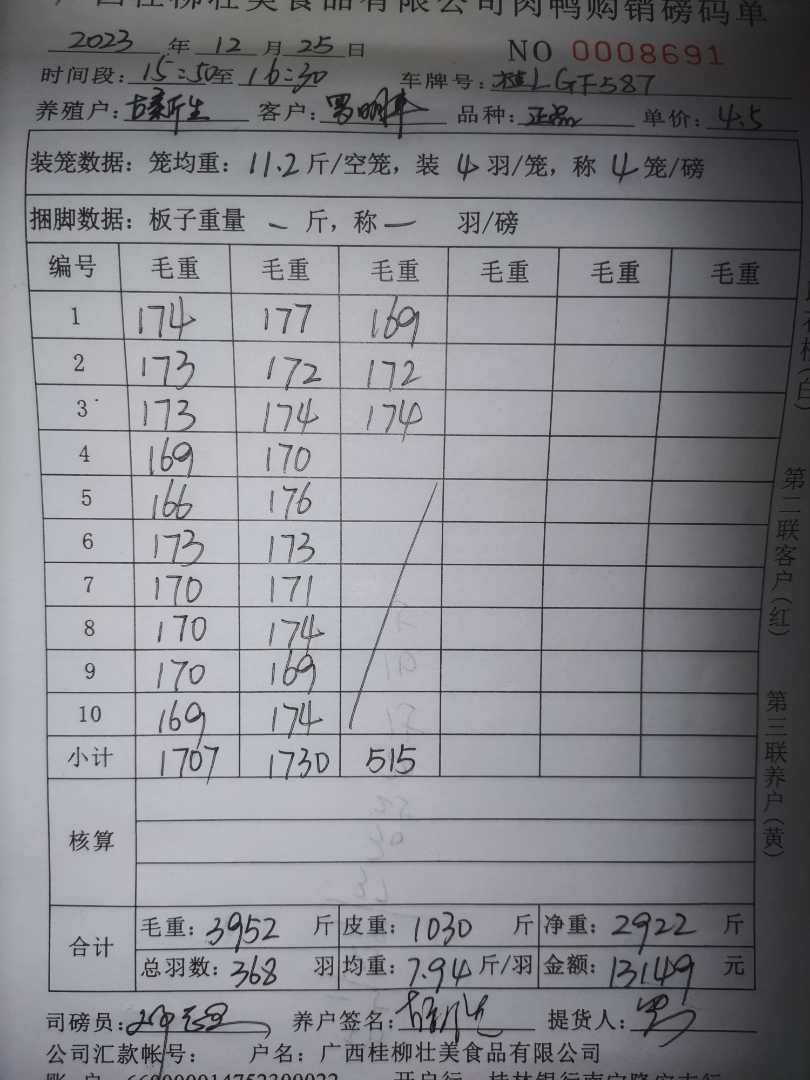 广西桂柳壮美食品有限公司肉鸭购销磅码单
2023 年 12 月 25 日 NO 0008691
时间段: 15:50 至 16:30 车牌号: 桂LGF587
养殖户: 客户: 罗明 品种: 正品 单价: 4.5
装笼数据: 笼均重: 11.2 斤/空笼, 装 4 羽/笼, 称 4 笼/磅
捆脚数据: 板子重量 一 斤, 称 一 羽/磅
编号 毛重 毛重 毛重 毛重 毛重 毛重
1 174 177 169
2 173 172 172
3 173 174 174
4 169 170
5 166 176
6 173 173
7 170 171
8 170 174
9 170 169
10 169 174
小计 1707 1730 515
核算
合计 毛重: 3952 斤 皮重: 1030 斤 净重: 2922 斤
总羽数: 368 羽 均重: 7.94 斤/羽 金额: 13149 元
司磅员: 养户签名: 提货人: 罗
公司汇款帐号: 户名: 广西桂柳壮美食品有限公司
第二联客户(红)
第三联养户(黄)